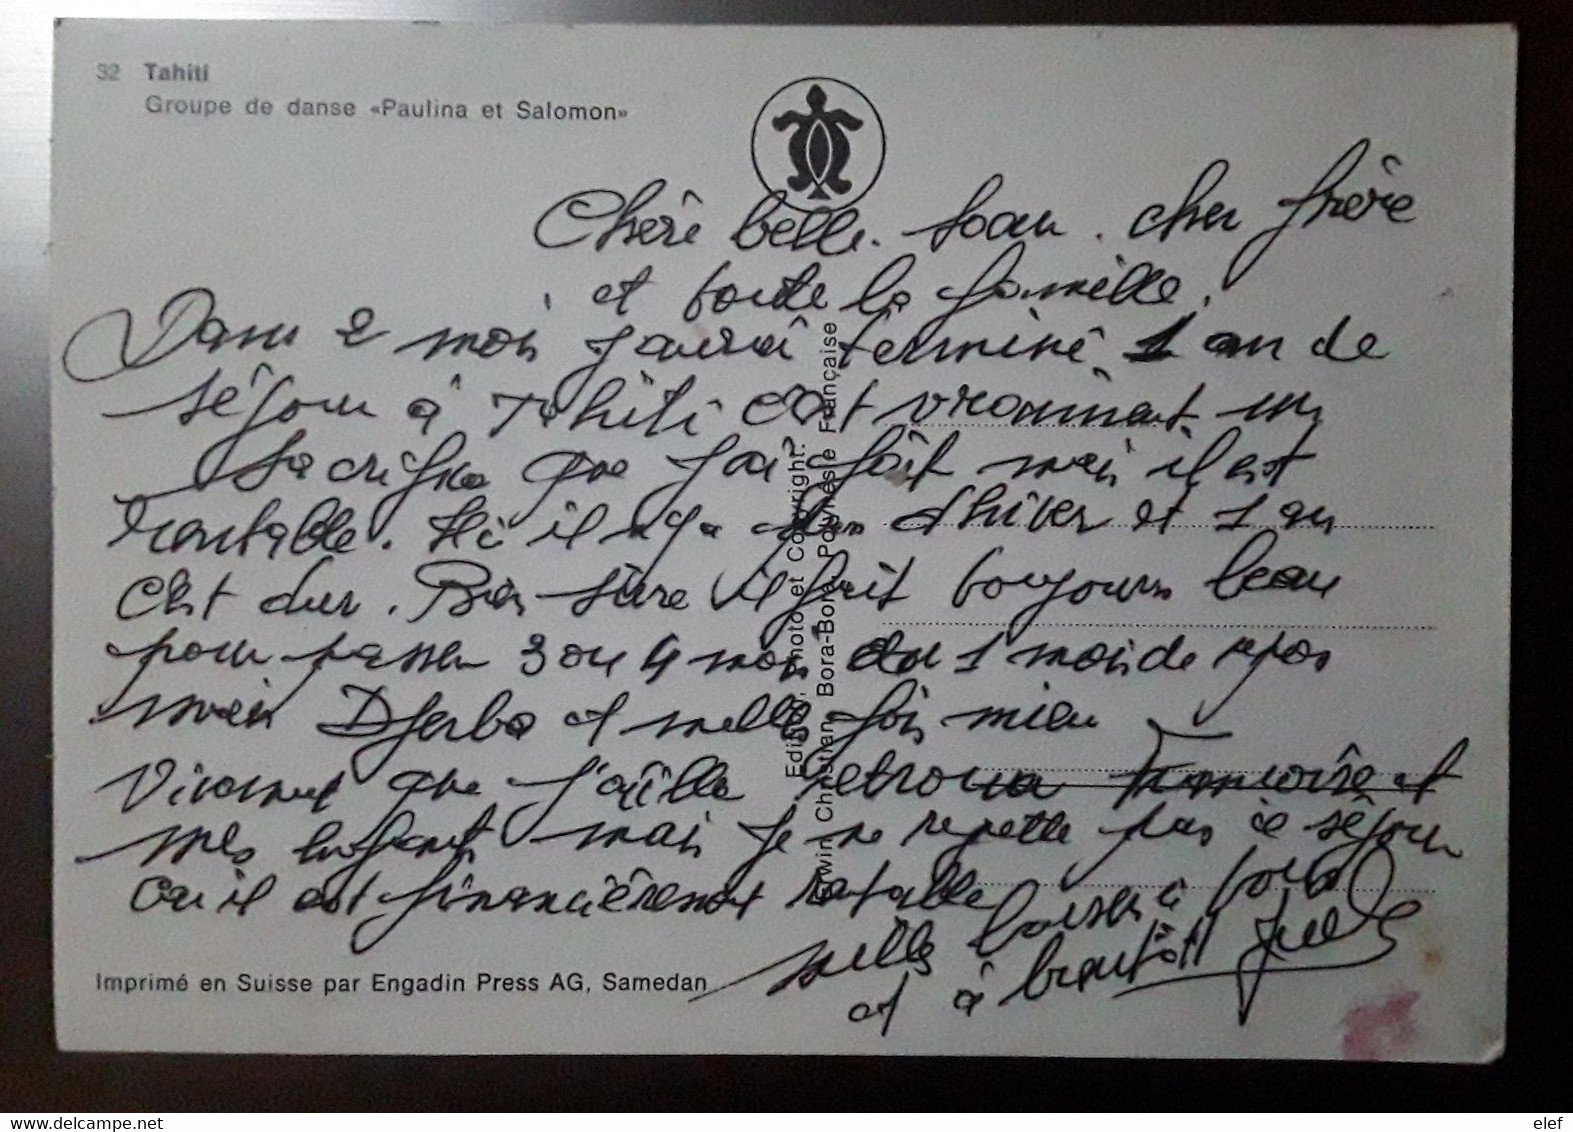 32 Tahiti
Groupe de danse «Paulina et Salomon»
Chère belle. Soeur. cher frère
et toute la famille.
Dans 2 mois j'aurai terminé 1 an de
séjour à Tahiti c'est vraiment un
sacrifice que j'ai fait mais il est
rentable. Ici il n'y a pas d'hiver et 1 an
c'est dur. Bien sûre il fait toujours beau
pour passer 3 ou 4 mois ou 1 mois de repos
mais Djerba et mille fois mieu
Vivement que j'aille retrouver Françoise et
mes enfants mais je ne regrette pas ce séjour
car il est financièrement rentable
mille baiser à tous
et à bientôt Jules
Edition, Photo et Copyright:
Erwin Christian, Bora-Bora, Polynésie Française
Imprimé en Suisse par Engadin Press AG, Samedan
www.delcampe.net
elef